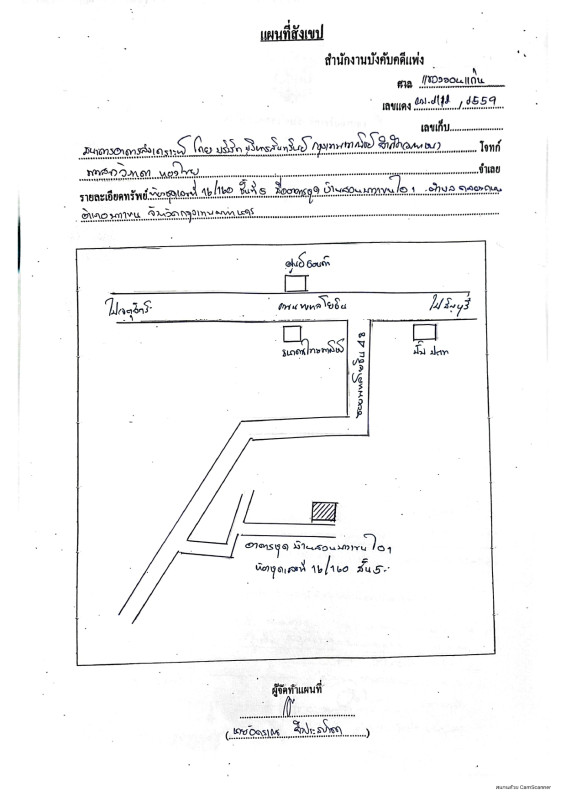 แผนที่สังเขป
สำนักงานบังคับคดีแพ่ง
ศาล แขวงขอนแก่น
เลขแดง /2559
เลขเก็บ
ธนาคารอาคารสงเคราะห์ โดย บริษัท บริหารสินทรัพย์ กรุงเทพพาณิชย์ จำกัด (มหาชน) โจทก์
จำเลย
รายละเอียดทรัพย์ ห้องชุดเลขที่ 16/160 ชั้นที่ 5 ชื่ออาคารชุด บ้านสวนบางเขน ไอ 1
อำเภอบางเขน จังหวัดกรุงเทพมหานคร
ศูนย์ฮอนด้า
ไปจตุจักร
ถนนพหลโยธิน
ไปมีนบุรี
ธนาคารไทยพาณิชย์
ซอยพหลโยธิน 48
ปั๊ม ปตท
อาคารชุด บ้านสวนบางเขน ไอ 1
ห้องชุดเลขที่ 16/160 ชั้น 5
ผู้จัดทำแผนที่
สแกนด้วย CamScanner